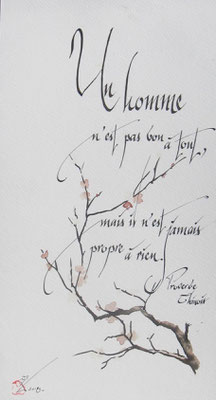 Un
homme
n'est pas bon
à tout,
mais il n'est jamais
propre à rien.
Proverbe
Chinois